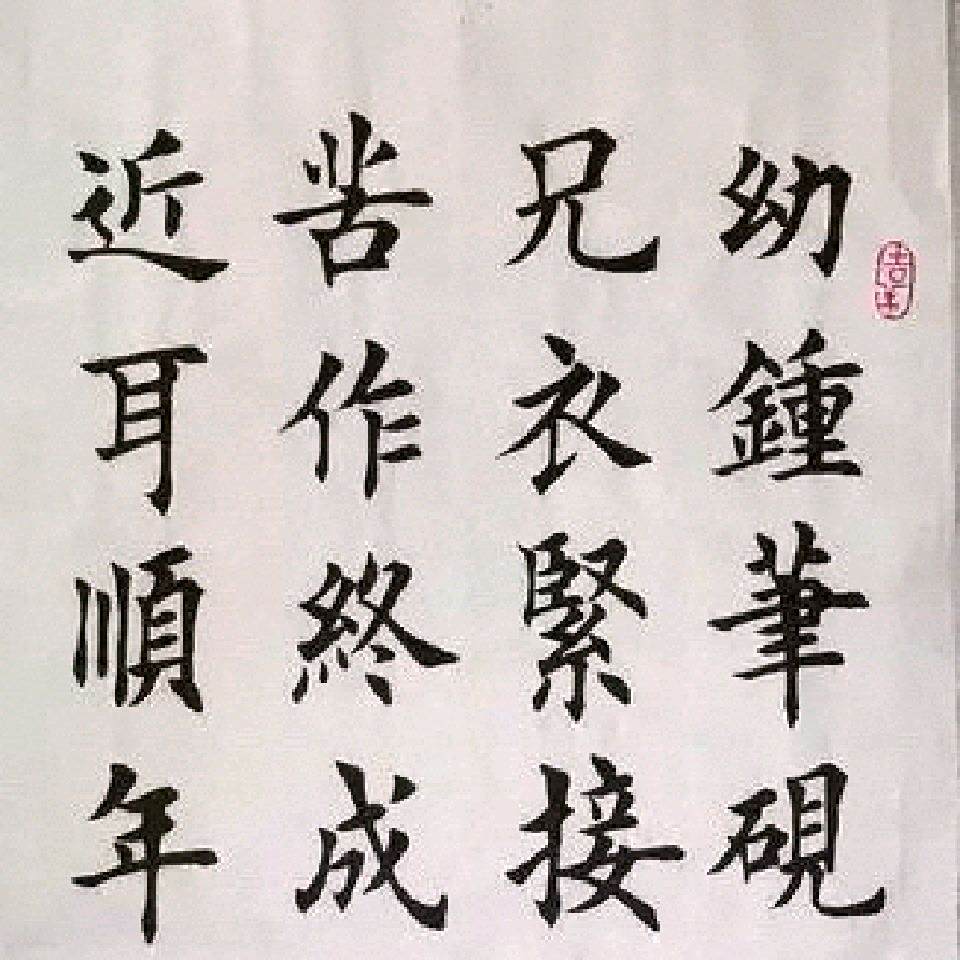 幼鍾筆硯
兄衣緊接
苦作終成
近耳順年